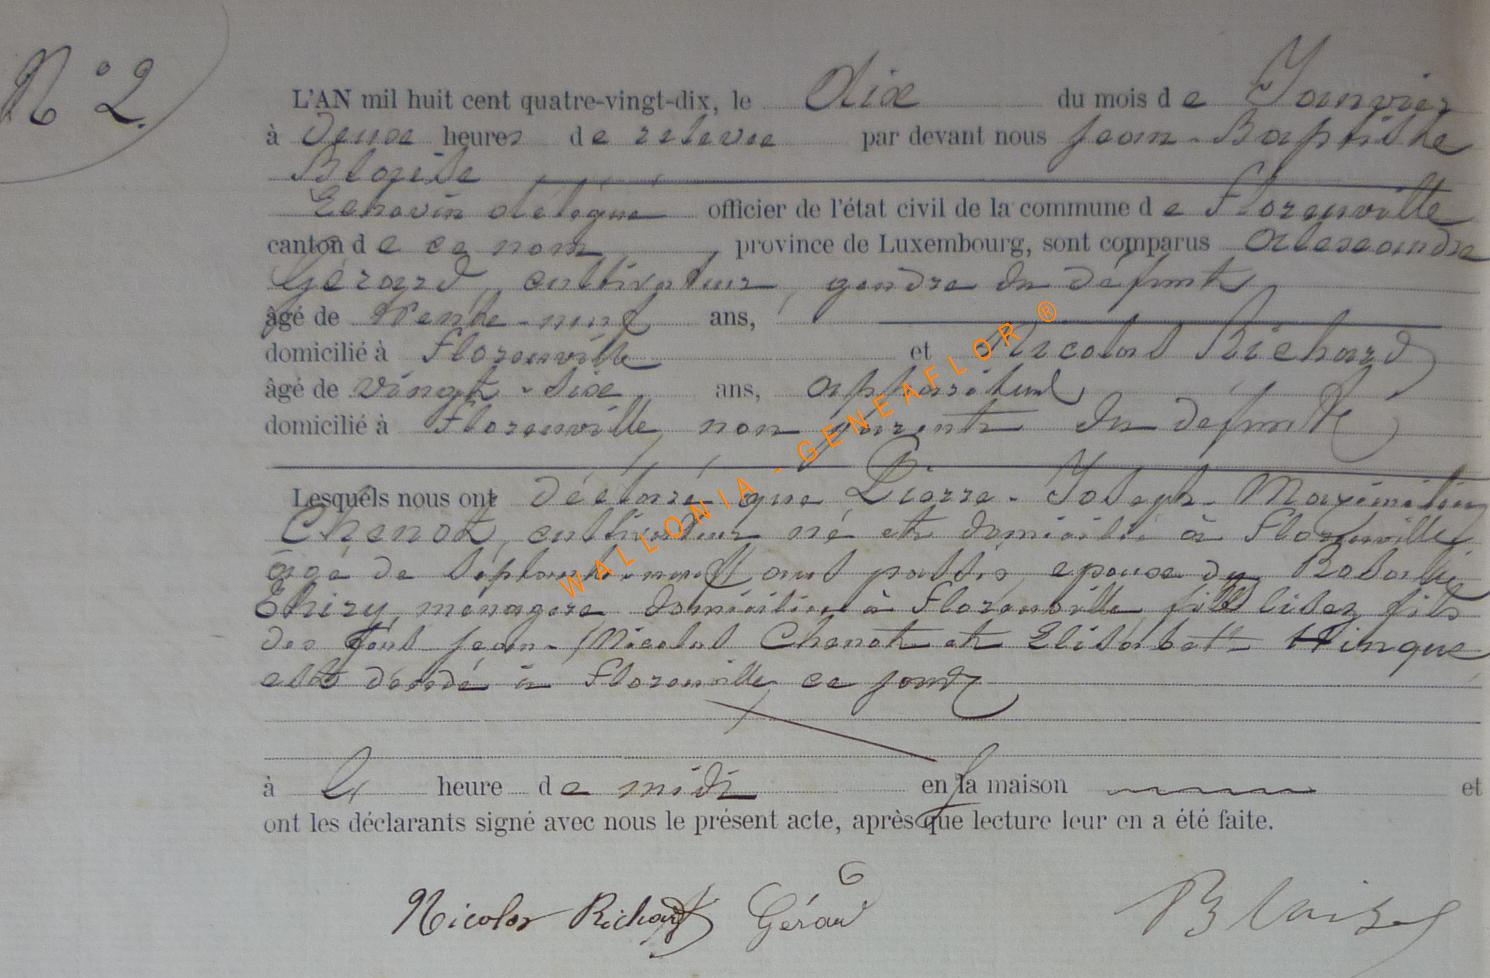 N° 2.
L'AN mil huit cent quatre-vingt-dix, le dix du mois de Janvier
à deux heures de relevée par devant nous Jean-Baptiste
Blaise
Echevin délégué officier de l'état civil de la commune de Florenville
canton de ce nom, province de Luxembourg, sont comparus Alexandre
Gérard, cultivateur, gendre du défunt
âgé de trente-neuf ans,
domicilié à Florenville et Nicolas Richard
âgé de vingt-six ans, appariteur
domicilié à Florenville, non parent du défunt
Lesquels nous ont déclaré que Pierre-Joseph-Maximilien
Chenot, cultivateur né et domicilié à Florenville
âgé de septante-neuf ans passés, epoux de Rosalie
Thiry, ménagère domiciliée à Florenville, fille lisez fils
des feus Jean-Nicolas Chenot et Elisabeth Hinque
est décédé à Florenville ce jour
à heure de midi en sa maison et
ont les déclarants signé avec nous le présent acte, après que lecture leur en a été faite.
Nicolas Richard Gérard Blaise
WALLONIA - GENEAFLOR ®